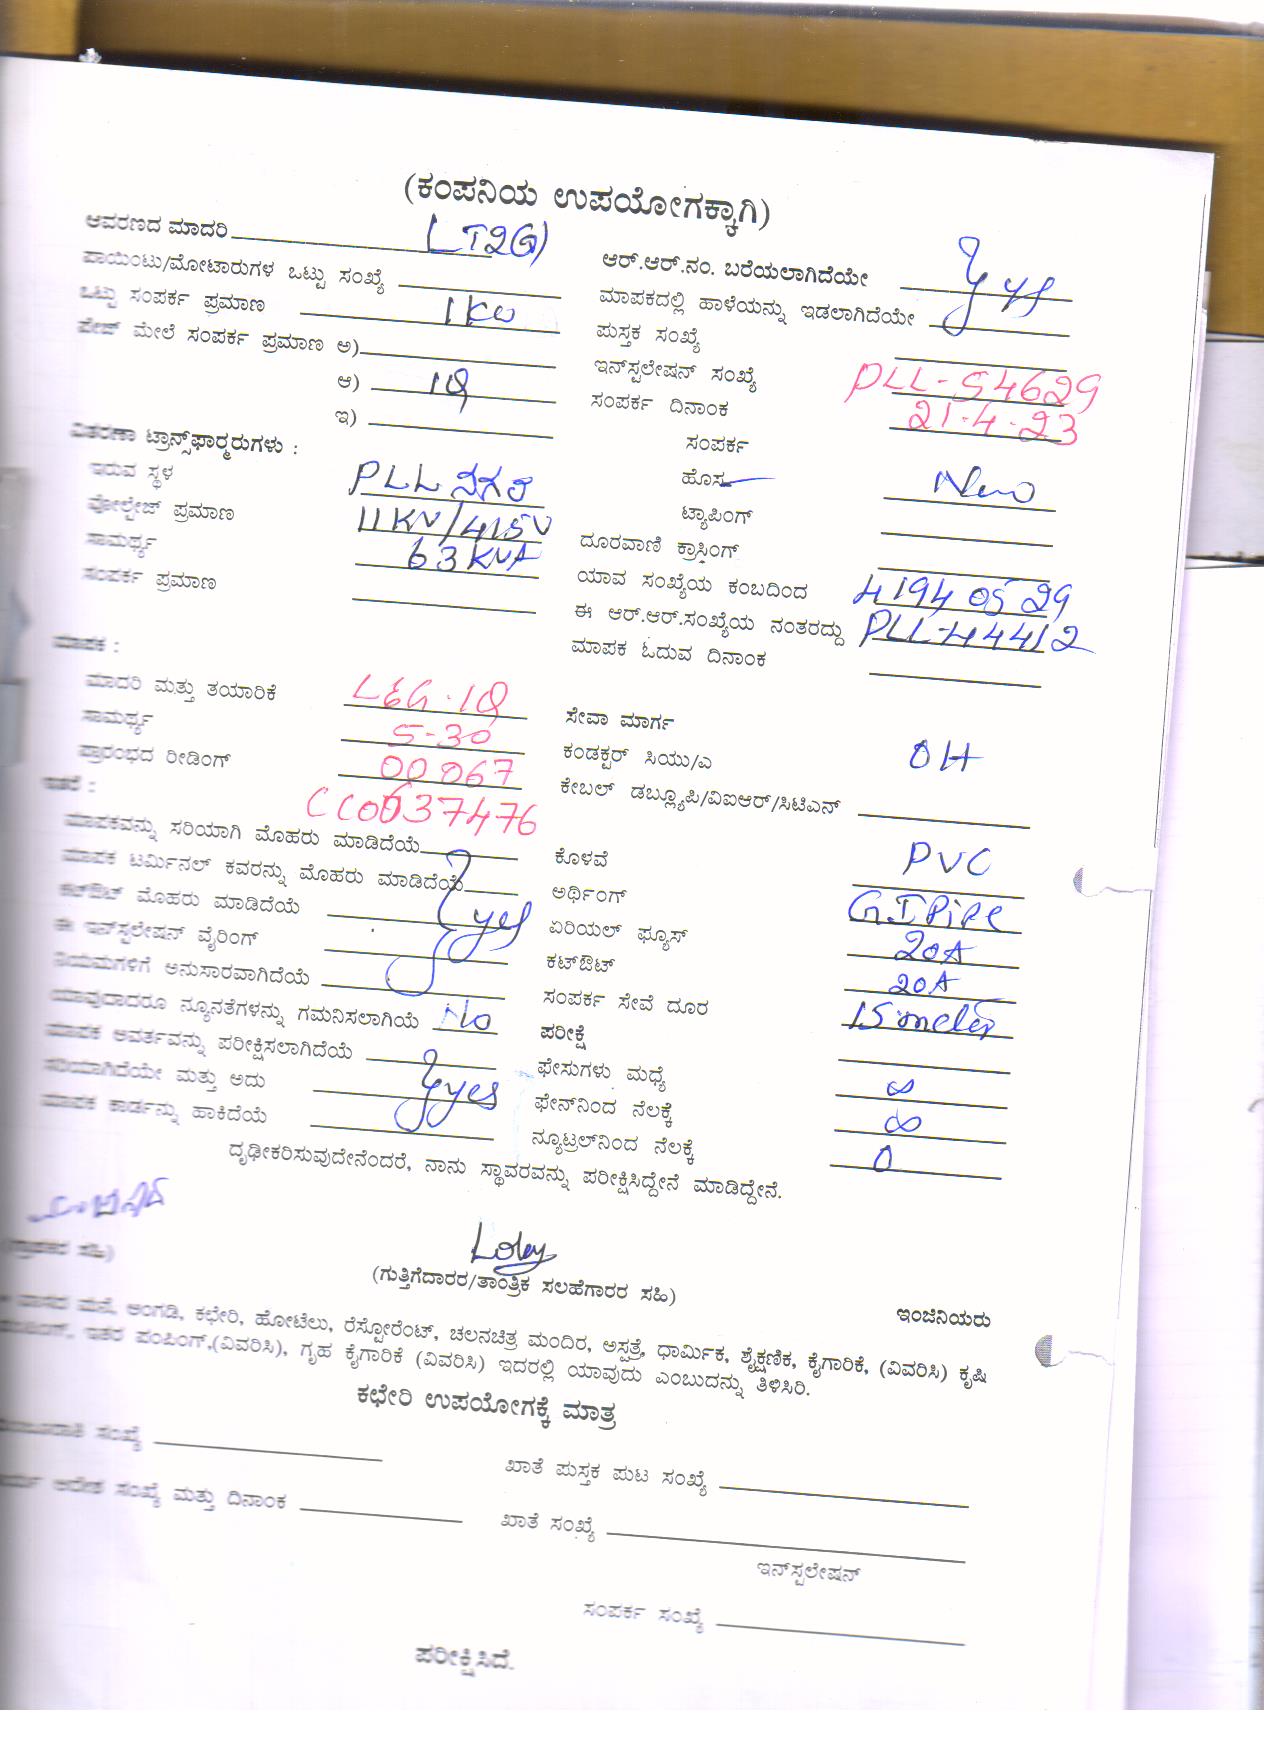 (ಕಂಪನಿಯ ಉಪಯೋಗಕ್ಕಾಗಿ)
ಆವರಣದ ಮಾದರಿ LT2(G)
ಪಾಯಿಂಟು/ಮೋಟಾರುಗಳ ಒಟ್ಟು ಸಂಖ್ಯೆ
ಒಟ್ಟು ಸಂಪರ್ಕ ಪ್ರಮಾಣ 1 KW
ಪೇಜ್ ಮೇಲೆ ಸಂಪರ್ಕ ಪ್ರಮಾಣ ಅ)
ಆ) 1Φ
ಇ)
ವಿತರಣಾ ಟ್ರಾನ್ಸ್‌ಫಾರ್ಮರುಗಳು :
ಇರುವ ಸ್ಥಳ PLL ನಗರ
ವೋಲ್ಟೇಜ್ ಪ್ರಮಾಣ 11KV/415V
ಸಾಮರ್ಥ್ಯ 63KVA
ಸಂಪರ್ಕ ಪ್ರಮಾಣ
ಮಾಪಕ :
ಮಾದರಿ ಮತ್ತು ತಯಾರಿಕೆ L&G-1Φ
ಸಾಮರ್ಥ್ಯ 5-30
ಪ್ರಾರಂಭದ ರೀಡಿಂಗ್ 00067
ಇತರೆ :
ಮಾಪಕವನ್ನು ಸರಿಯಾಗಿ ಮೊಹರು ಮಾಡಿದೆಯೆ
ಮಾಪಕ ಟರ್ಮಿನಲ್ ಕವರನ್ನು ಮೊಹರು ಮಾಡಿದೆಯೆ
ಕಟ್‌ಔಟ್ ಮೊಹರು ಮಾಡಿದೆಯೆ yes
ಈ ಇನ್‌ಸ್ಟಲೇಷನ್ ವೈರಿಂಗ್
ನಿಯಮಗಳಿಗೆ ಅನುಸಾರವಾಗಿದೆಯೆ
ಯಾವುದಾದರೂ ನ್ಯೂನತೆಗಳನ್ನು ಗಮನಿಸಲಾಗಿಯೆ No
ಮಾಪಕ ಅವರ್ತವನ್ನು ಪರೀಕ್ಷಿಸಲಾಗಿದೆಯೆ
ಸರಿಯಾಗಿದೆಯೇ ಮತ್ತು ಅದು yes
ಮಾಪಕ ಕಾರ್ಡನ್ನು ಹಾಕಿದೆಯೆ
ಆರ್.ಆರ್.ನಂ. ಬರೆಯಲಾಗಿದೆಯೇ yes
ಮಾಪಕದಲ್ಲಿ ಹಾಳೆಯನ್ನು ಇಡಲಾಗಿದೆಯೇ
ಪುಸ್ತಕ ಸಂಖ್ಯೆ
ಇನ್‌ಸ್ಟಲೇಷನ್ ಸಂಖ್ಯೆ PLL-54629
ಸಂಪರ್ಕ ದಿನಾಂಕ 21-4-23
ಸಂಪರ್ಕ
ಹೊಸ New
ಟ್ಯಾಪಿಂಗ್
ದೂರವಾಣಿ ಕ್ರಾಸಿಂಗ್
ಯಾವ ಸಂಖ್ಯೆಯ ಕಂಬದಿಂದ 4194 05 29
ಈ ಆರ್.ಆರ್.ಸಂಖ್ಯೆಯ ನಂತರದ್ದು PLL-44412
ಮಾಪಕ ಓದುವ ದಿನಾಂಕ
ಸೇವಾ ಮಾರ್ಗ
ಕಂಡಕ್ಟರ್ ಸಿಯು/ಎ OH
ಕೇಬಲ್ ಡಬ್ಲ್ಯೂಪಿ/ವಿಐಆರ್/ಸಿಟಿಎನ್
ಕೊಳವೆ PVC
ಅರ್ಥಿಂಗ್ G.I Pipe
ಏರಿಯಲ್ ಫ್ಯೂಸ್ 20A
ಕಟ್‌ಔಟ್ 20A
ಸಂಪರ್ಕ ಸೇವೆ ದೂರ 15 meter
ಪರೀಕ್ಷೆ
ಫೇಸುಗಳು ಮಧ್ಯೆ ∞
ಫೇನ್‌ನಿಂದ ನೆಲಕ್ಕೆ ∞
ನ್ಯೂಟ್ರಲ್‌ನಿಂದ ನೆಲಕ್ಕೆ 0
ದೃಢೀಕರಿಸುವುದೇನೆಂದರೆ, ನಾನು ಸ್ಥಾವರವನ್ನು ಪರೀಕ್ಷಿಸಿದ್ದೇನೆ ಮಾಡಿದ್ದೇನೆ.
ಸಹಿ)
(ಗುತ್ತಿಗೆದಾರರ/ತಾಂತ್ರಿಕ ಸಲಹೆಗಾರರ ಸಹಿ)
ಇಂಜಿನಿಯರು
ವಾಸದ ಮನೆ, ಅಂಗಡಿ, ಕಛೇರಿ, ಹೋಟೆಲು, ರೆಸ್ಟೋರೆಂಟ್, ಚಲನಚಿತ್ರ ಮಂದಿರ, ಅಸ್ಪತ್ರೆ, ಧಾರ್ಮಿಕ, ಶೈಕ್ಷಣಿಕ, ಕೈಗಾರಿಕೆ, (ವಿವರಿಸಿ) ಕೃಷಿ
ಇತರ ಪಂಪಿಂಗ್,(ವಿವರಿಸಿ), ಗೃಹ ಕೈಗಾರಿಕೆ (ವಿವರಿಸಿ) ಇದರಲ್ಲಿ ಯಾವುದು ಎಂಬುದನ್ನು ತಿಳಿಸಿರಿ.
ಕಛೇರಿ ಉಪಯೋಗಕ್ಕೆ ಮಾತ್ರ
ಸಂಖ್ಯೆ
ಖಾತೆ ಪುಸ್ತಕ ಪುಟ ಸಂಖ್ಯೆ
ಆದೇಶ ಸಂಖ್ಯೆ ಮತ್ತು ದಿನಾಂಕ
ಖಾತೆ ಸಂಖ್ಯೆ
ಇನ್‌ಸ್ಟಲೇಷನ್
ಸಂಪರ್ಕ ಸಂಖ್ಯೆ
ಪರೀಕ್ಷಿಸಿದೆ.